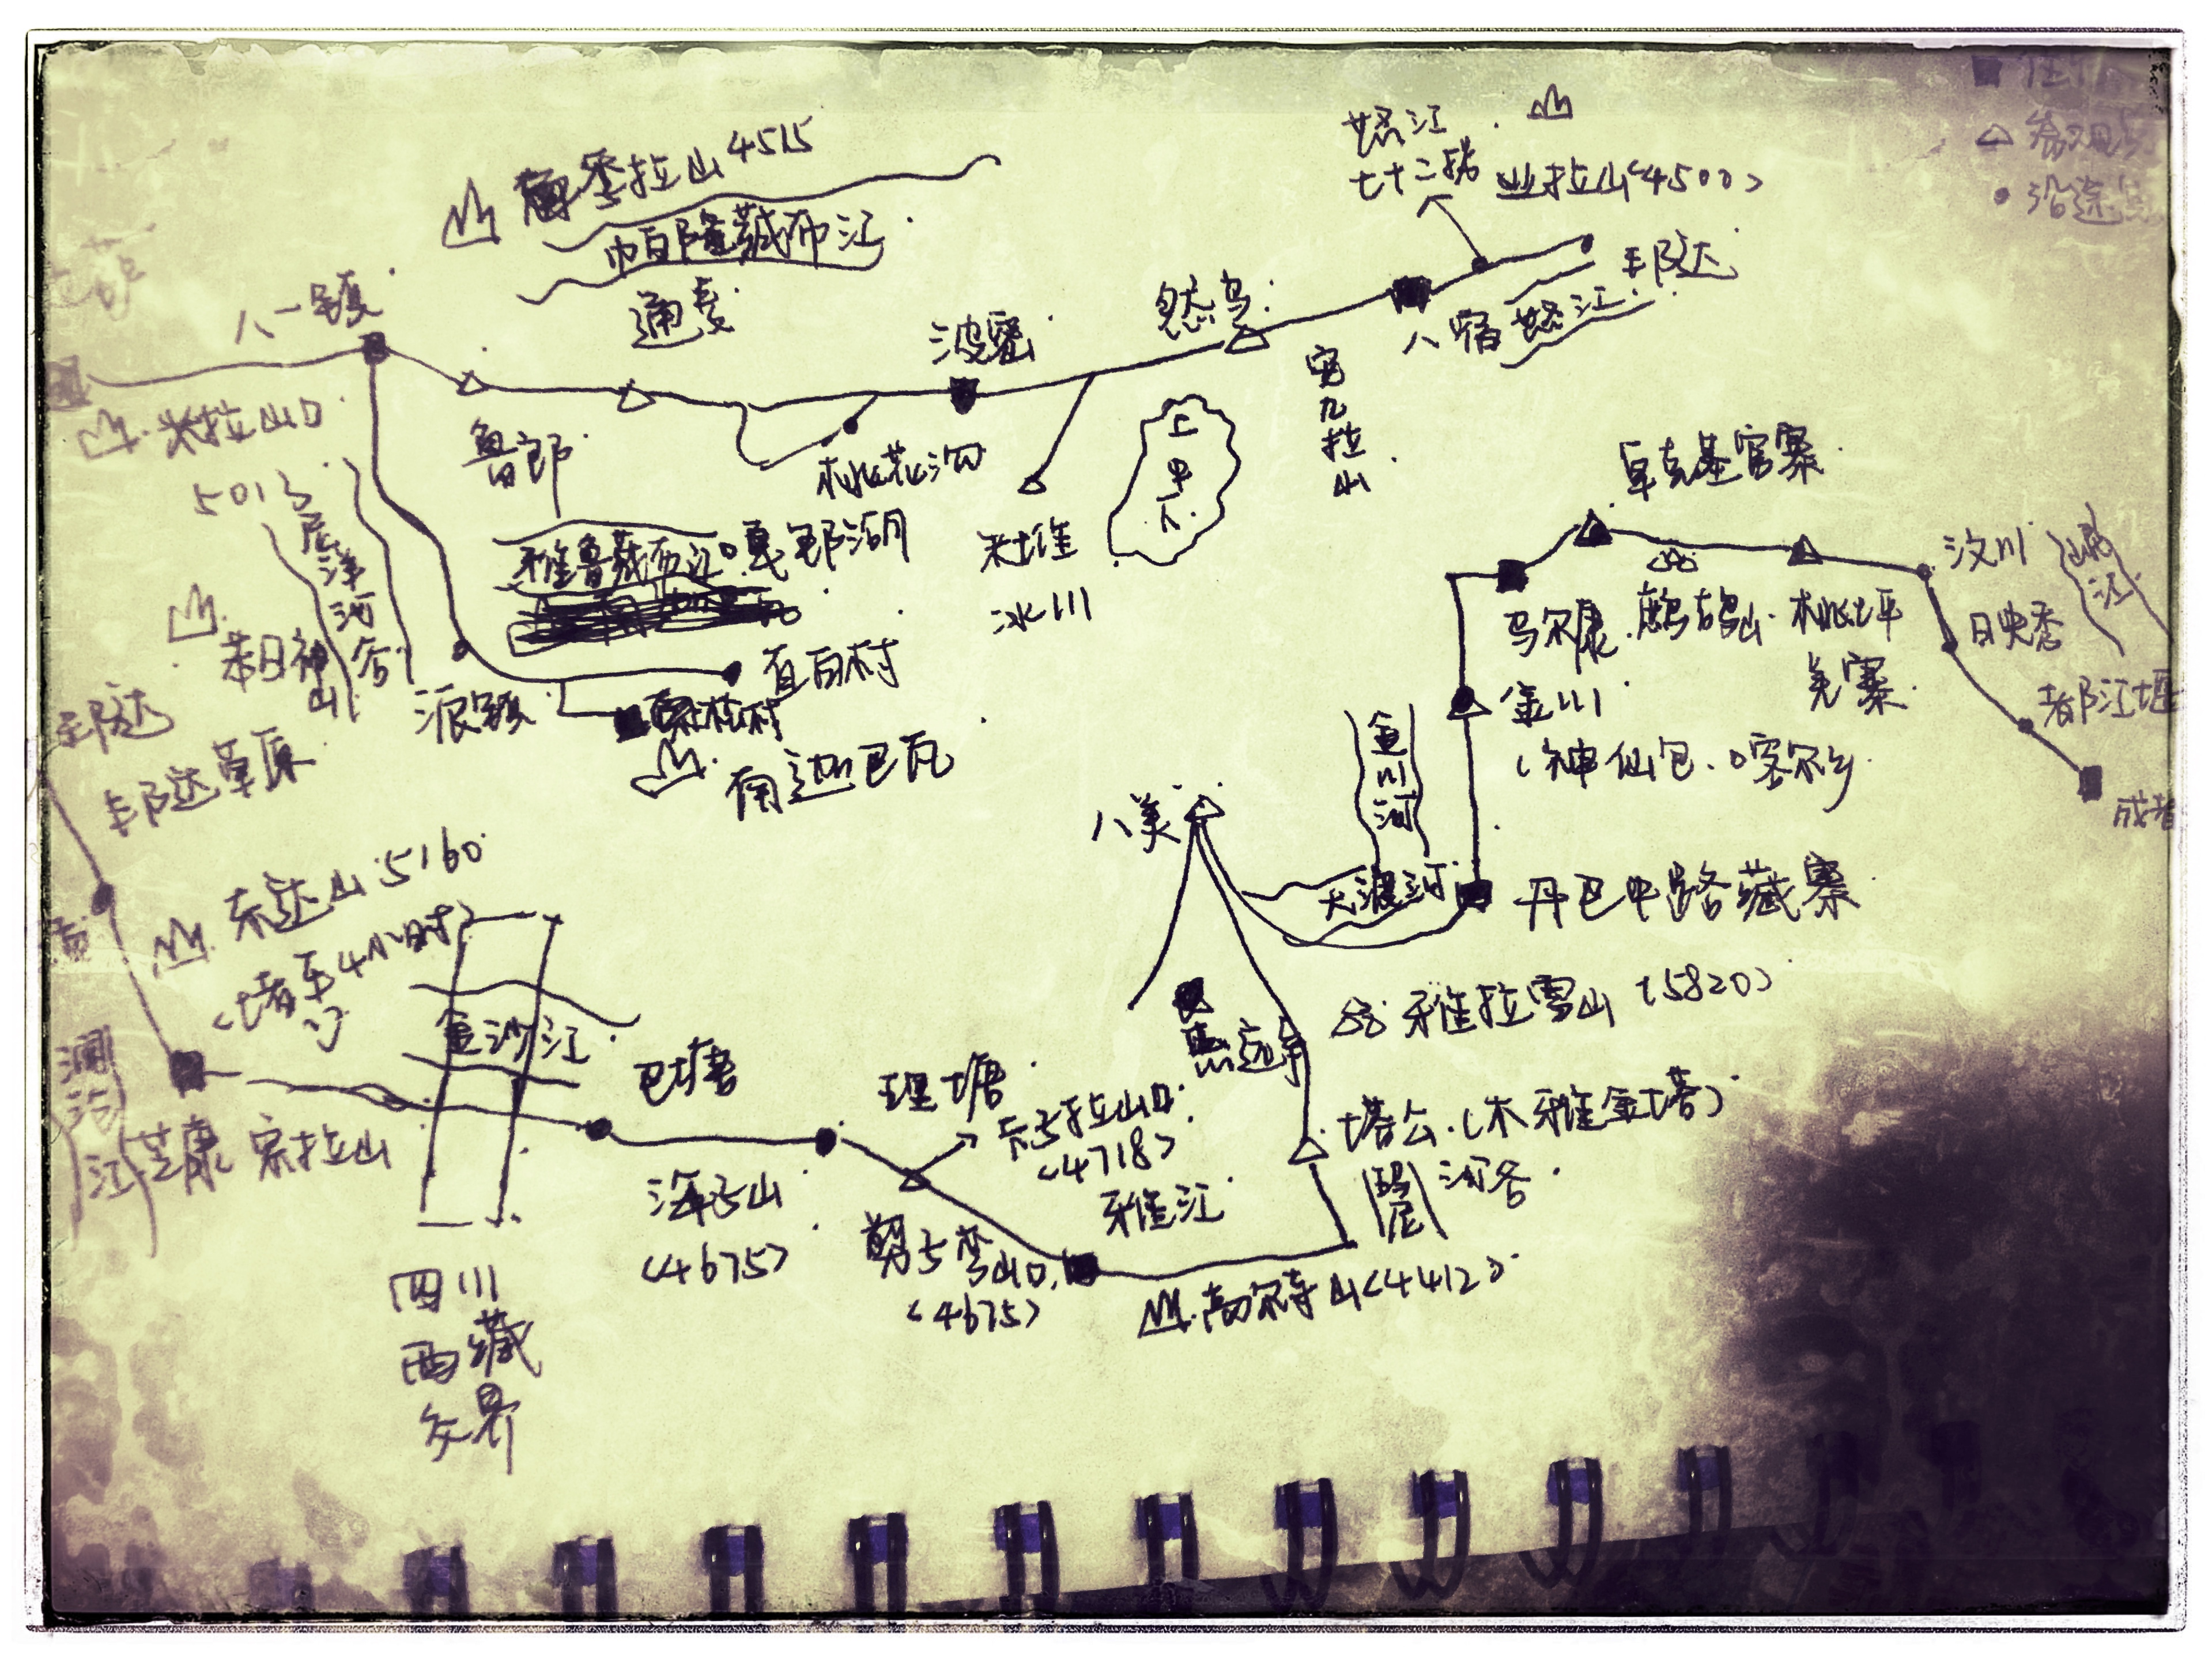 怒江
七十二拐
业拉山<4500>
色季拉山 4515
帕隆藏布江
通麦
八一镇
米拉山口
5013
鲁郎
波密
然乌
八宿
怒江
邦达
安
九
拉
山
桃花沟
米堆
冰川
上
中
下
尼
洋
河
谷
雅鲁藏布江
嘎郎湖
苯日神
山
派镇
直白村
索松村
南迦巴瓦
卓克基官寨
汶川
岷
江
马尔康
鹧鸪山
桃坪
羌寨
映秀
都江堰
成都
金川
(神仙包、喀尔乡
金
川
河
大渡河
八美
丹巴中路藏寨
雅拉雪山 (5820)
惠远寺
塔公.(木雅金塔)
河谷
邦达
邦达草原
东达山 5160
<堵车4小时>
澜
沧
江
芒康
宗拉山
金沙江
巴塘
理塘
卡子拉山口
<4718>
雅江
海子山
<4675>
剪子弯山口
<4675>
高尔寺山<4412>
四川
西藏
交界